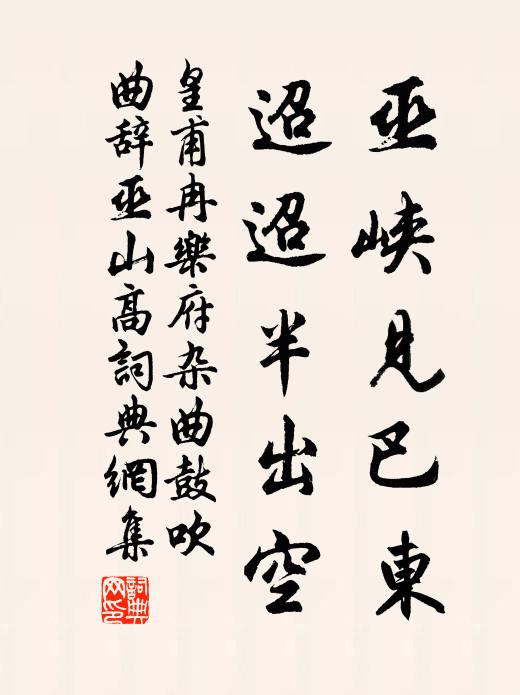 巫峽見巴東
迢迢半出空
皇甫冉樂府杂曲鼓吹
曲辞巫山高詞典網集
詞典
网印